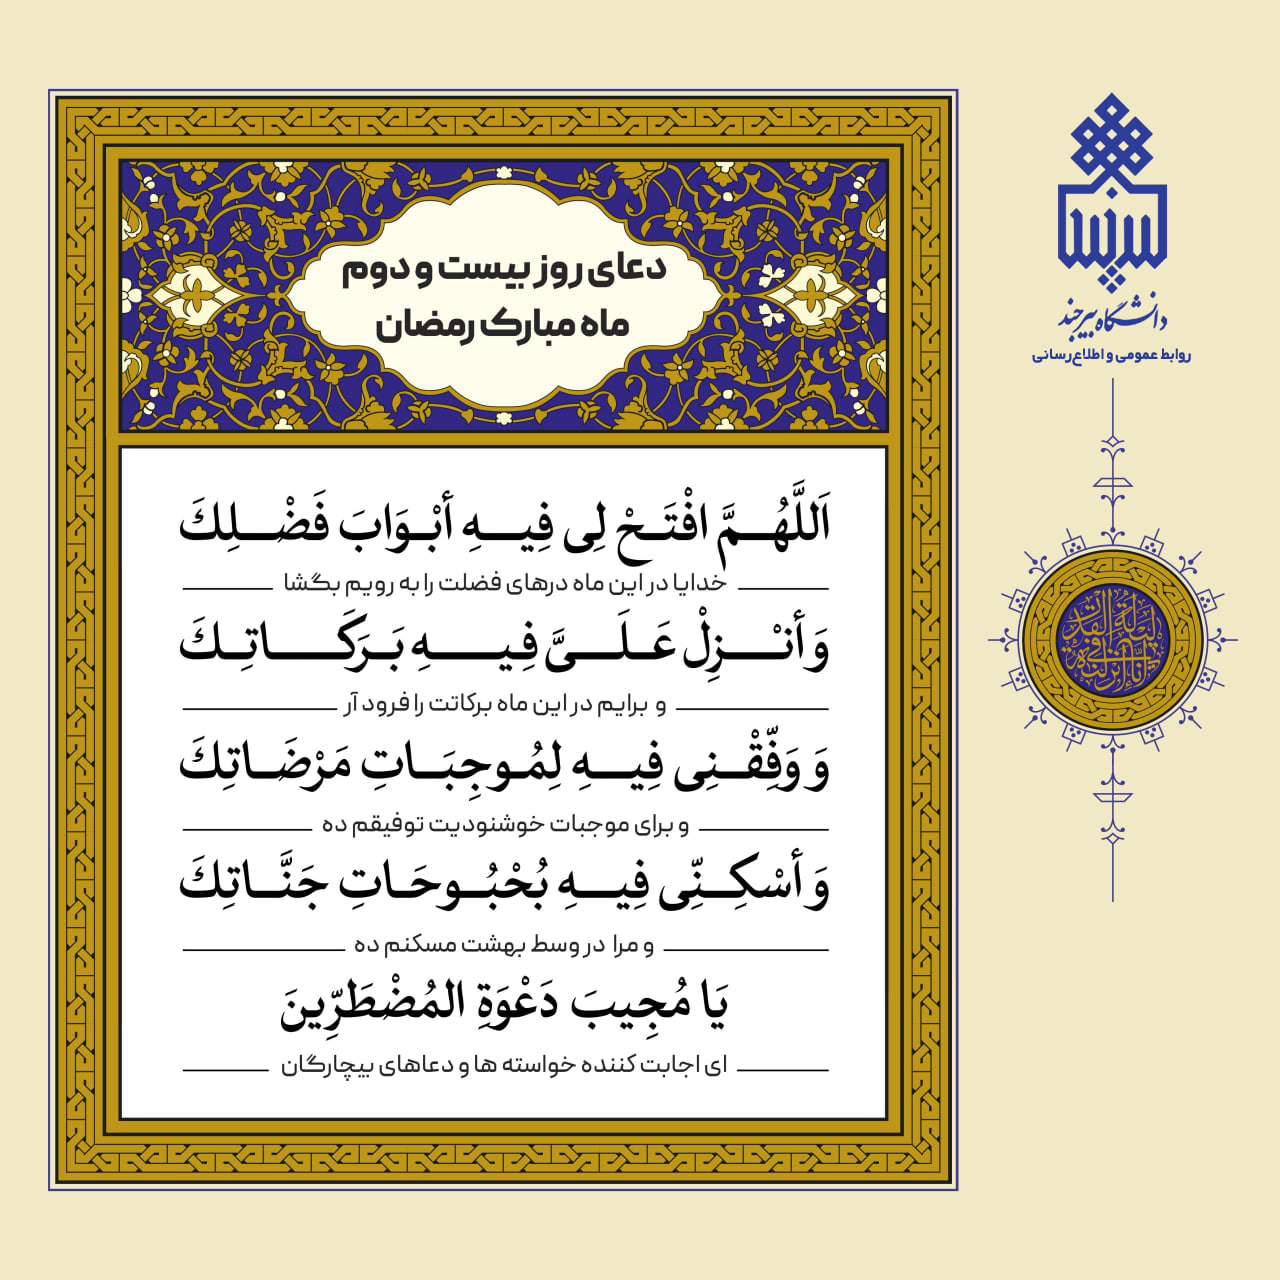 دعای روز بیست و دوم
ماه مبارک رمضان
اَللَّهُمَّ افْتَحْ لِی فِیهِ أبْوَابَ فَضْلِكَ
خدایا در این ماه درهای فضلت را به رویم بگشا
وَ أنْزِلْ عَلَیَّ فِیهِ بَرَكَاتِكَ
و برایم در این ماه برکاتت را فرود آر
وَ وَفِّقْنِی فِیهِ لِمُوجِبَاتِ مَرْضَاتِكَ
و برای موجبات خوشنودیت توفیقم ده
وَ أسْكِنِّی فِیهِ بُحْبُوحَاتِ جَنَّاتِكَ
و مرا در وسط بهشت مسکنم ده
یَا مُجِیبَ دَعْوَةِ المُضْطَرِّینَ
ای اجابت کننده خواسته ها و دعاهای بیچارگان
دانشگاه بیرجند
روابط عمومی و اطلاع‌رسانی
انا انزلنه فی لیلة القدر